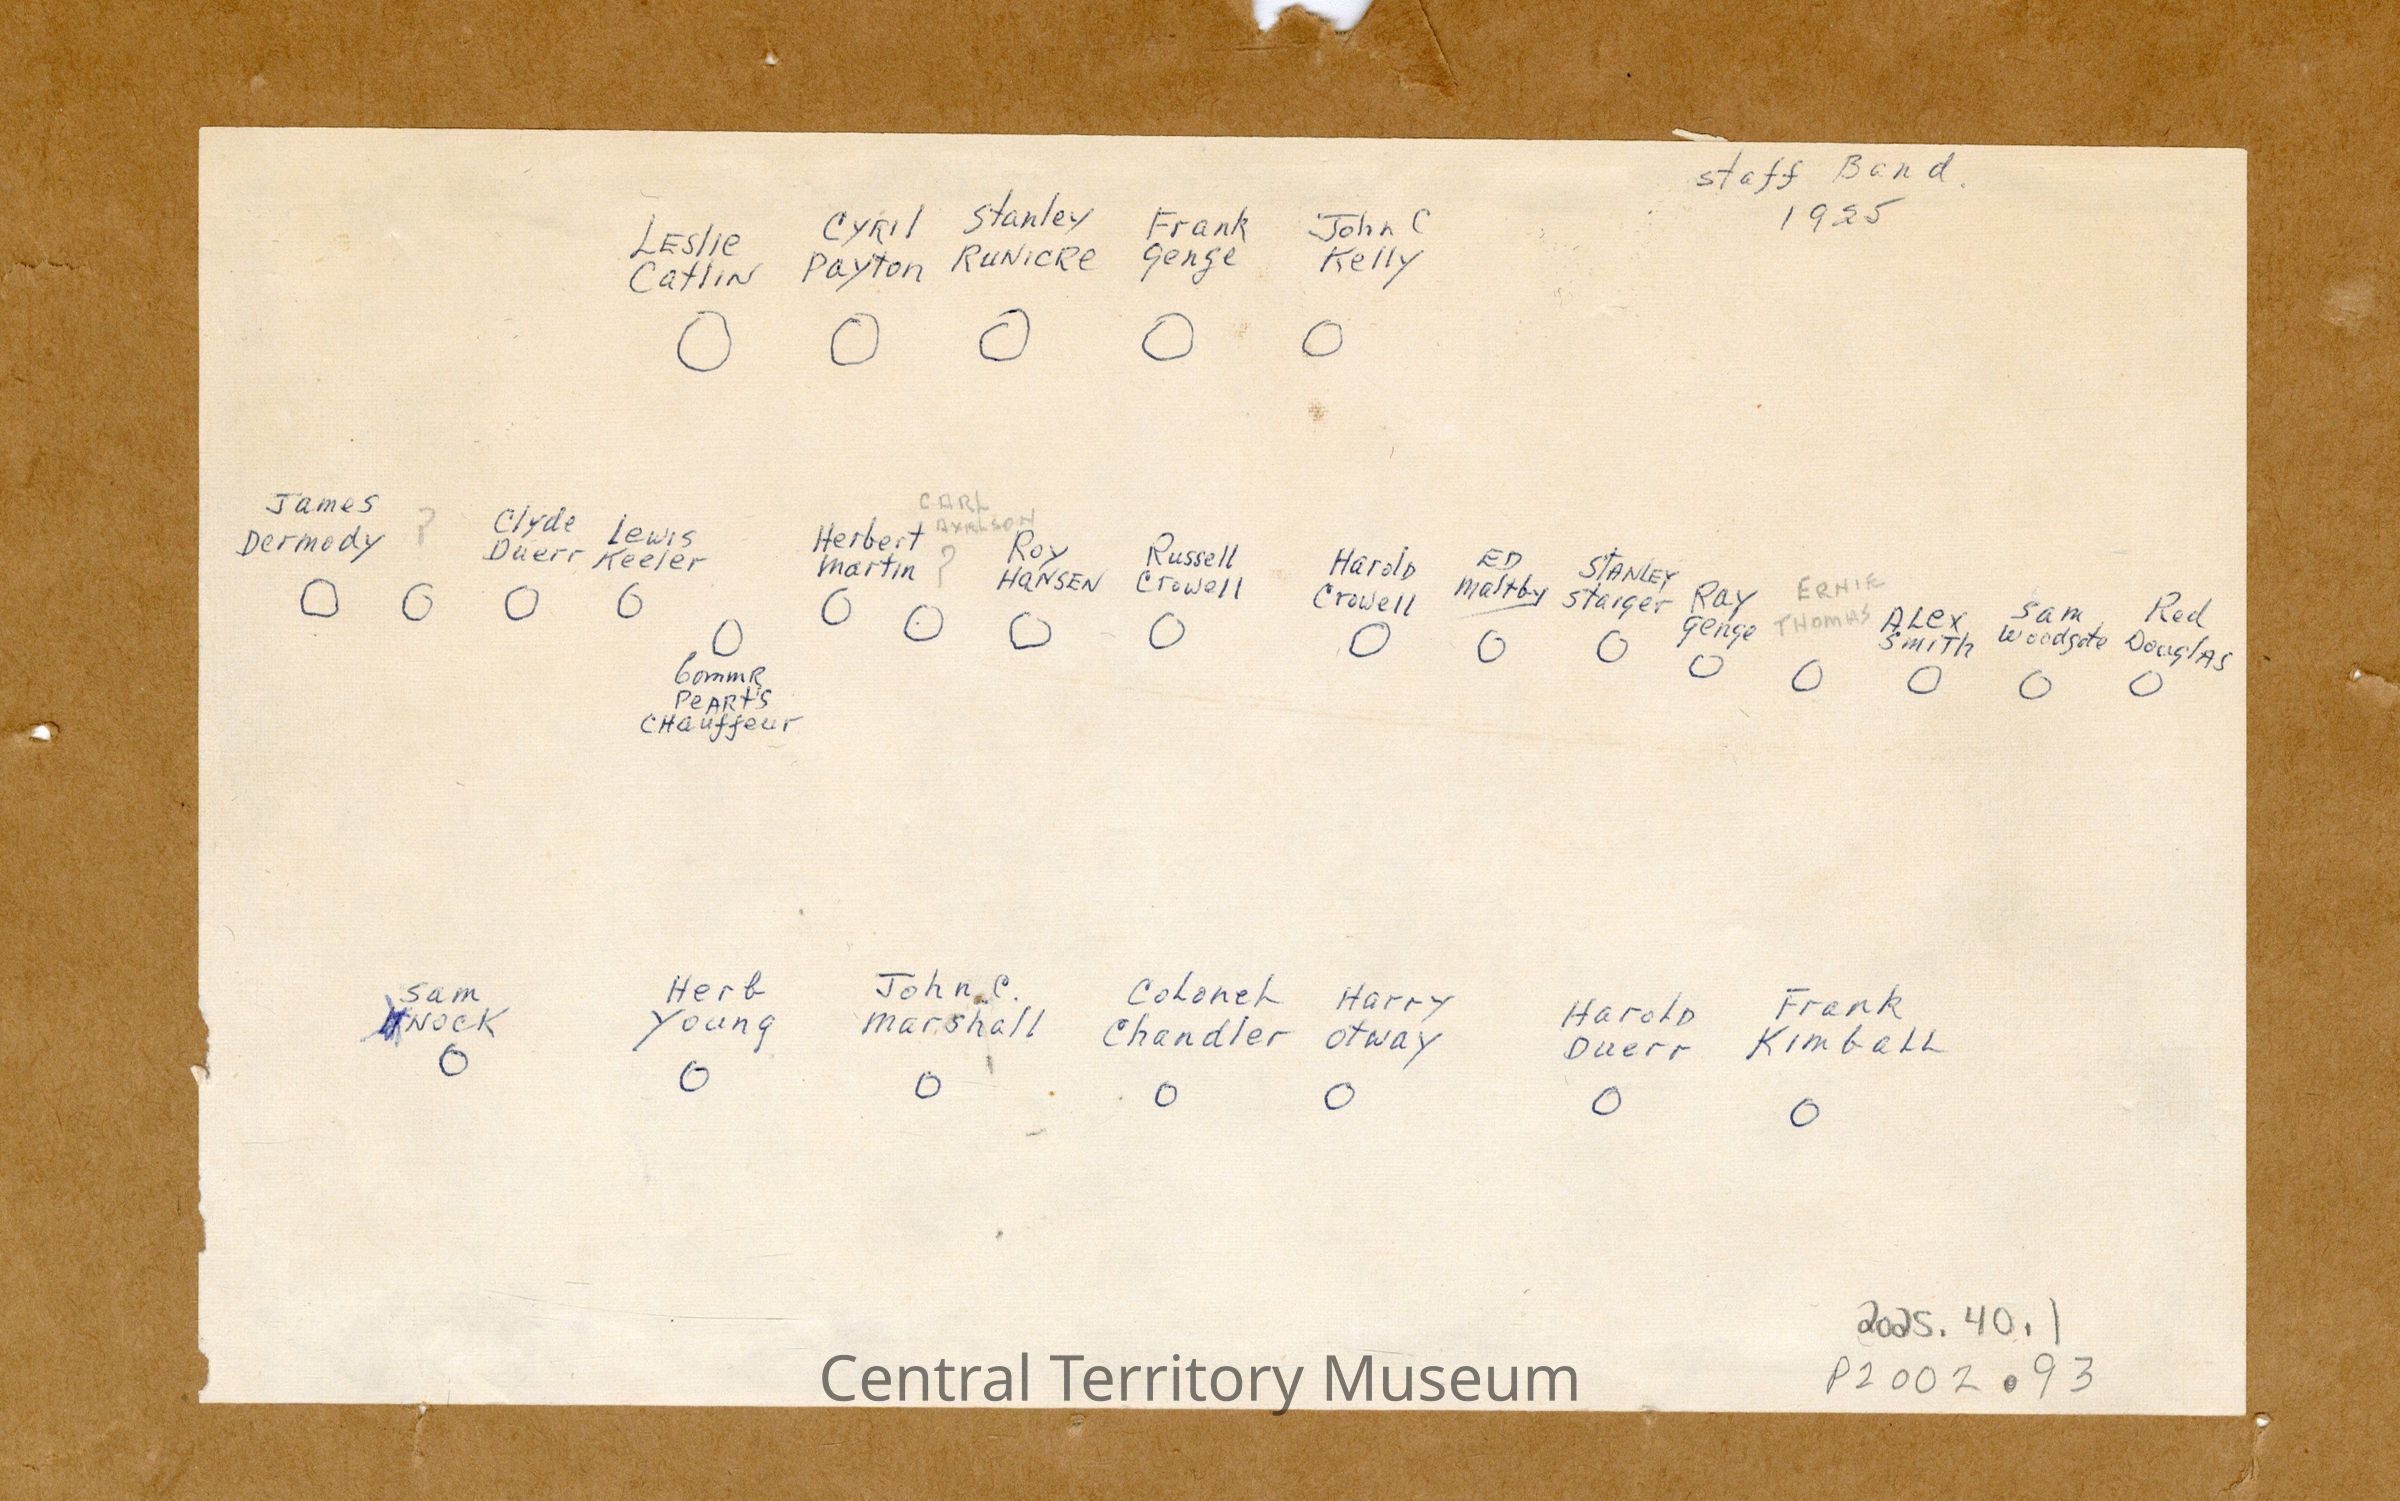 staff Band.
1925
Leslie Catlin
Cyril Payton
Stanley Runicre
Frank Genge
John C Kelly
James Dermody
?
Clyde Duerr
Lewis Keeler
Commr Peart's Chauffeur
Herbert Martin
CARL AXELSON
?
Roy Hansen
Russell Crowell
Harold Crowell
ED Maltby
Stanley Staiger
Ray Genge
ERNIE THOMAS
Alex Smith
Sam Woodgate
Red Douglas
Sam Nock
Herb Young
John C. Marshall
Colonel Chandler
Harry Otway
Harold Duerr
Frank Kimball
2025.40.1
P2002.93
Central Territory Museum